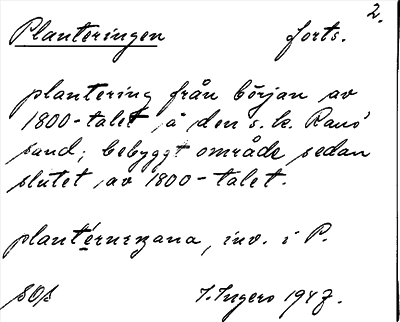 2.
Planteringen forts.
plantering från början av
1800-talet å den s. k. Ranö
sand; bebyggt område sedan
slutet av 1800-talet.
plantérnına, inv. i P.
SOs J. Ingers 1947.